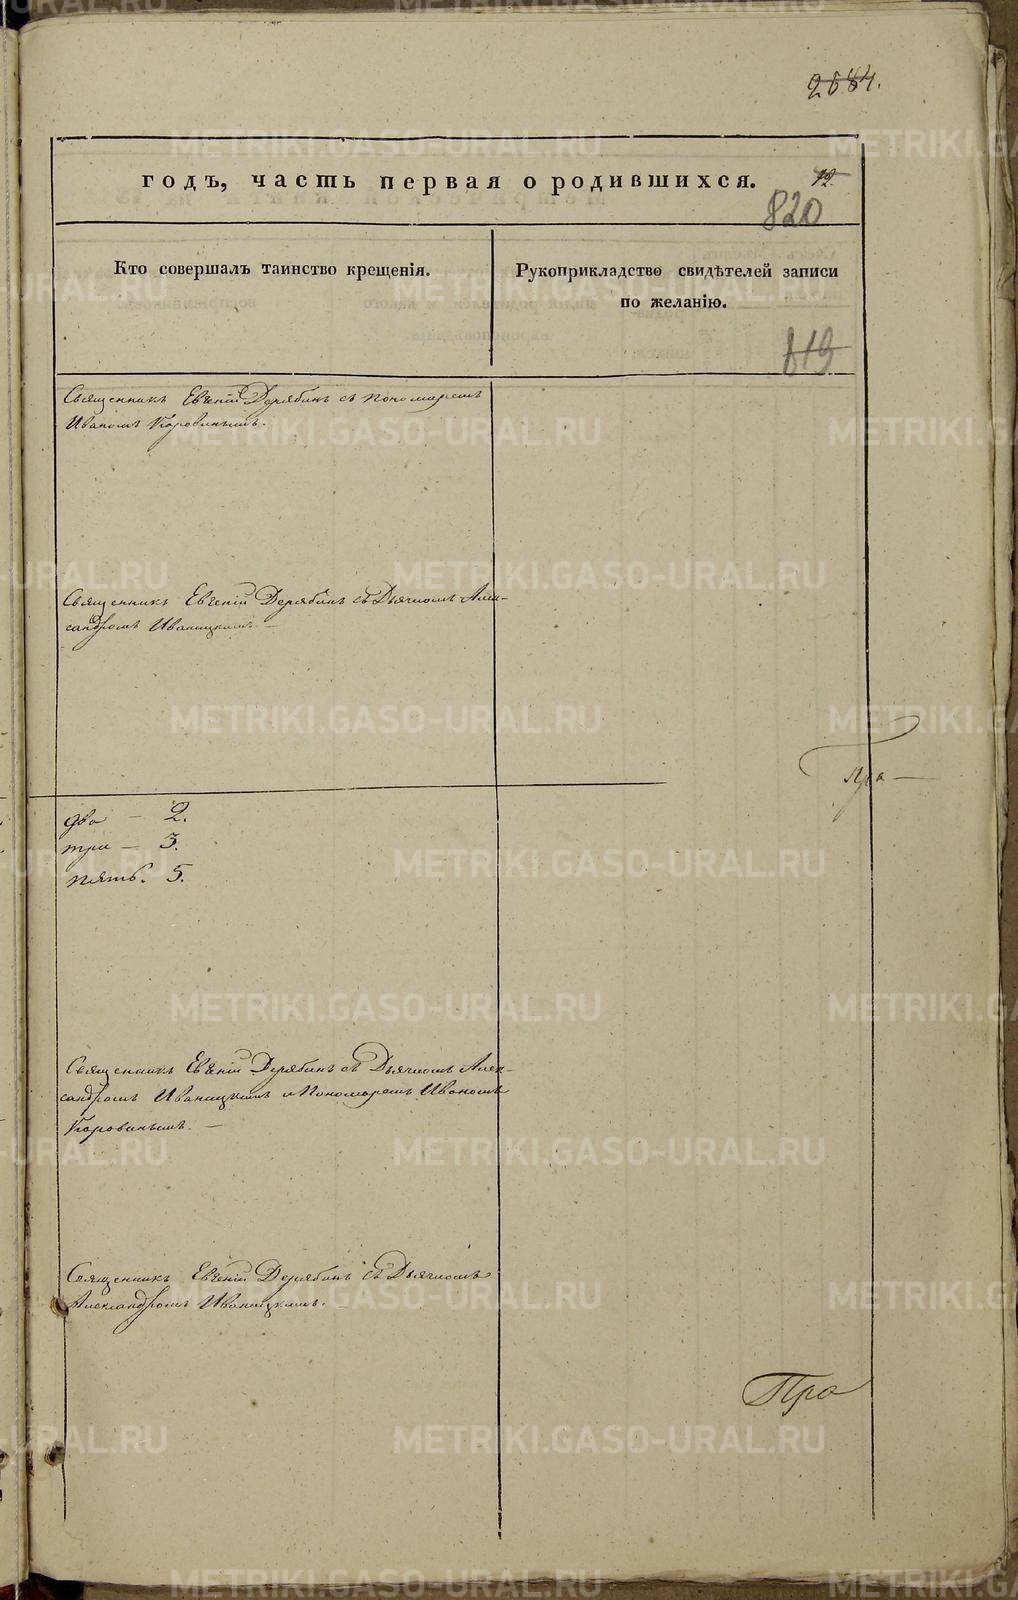 2684.
годъ, часть первая о родившихся.
12.
820
Кто совершалъ таинство крещенія.
Рукоприкладство свидѣтелей записи
по желанію.
819
Священникъ Евгеній Дерябинъ съ пономаремъ
Иваномъ Коровинымъ.
Священникъ Евгеній Дерябинъ съ Дьячкомъ Алек-
сандромъ Иваницкимъ. —
Пра —
два — 2.
три — 3.
пять. 5.
Священникъ Евгеній Дерябинъ съ Дьячкомъ Алек-
сандромъ Иваницкимъ и Пономаремъ Иваномъ
Коровинымъ. —
Священникъ Евгеній Дерябинъ съ Дьячкомъ
Александромъ Иваницкимъ. —
Пра
METRIKI.GASO-URAL.RU